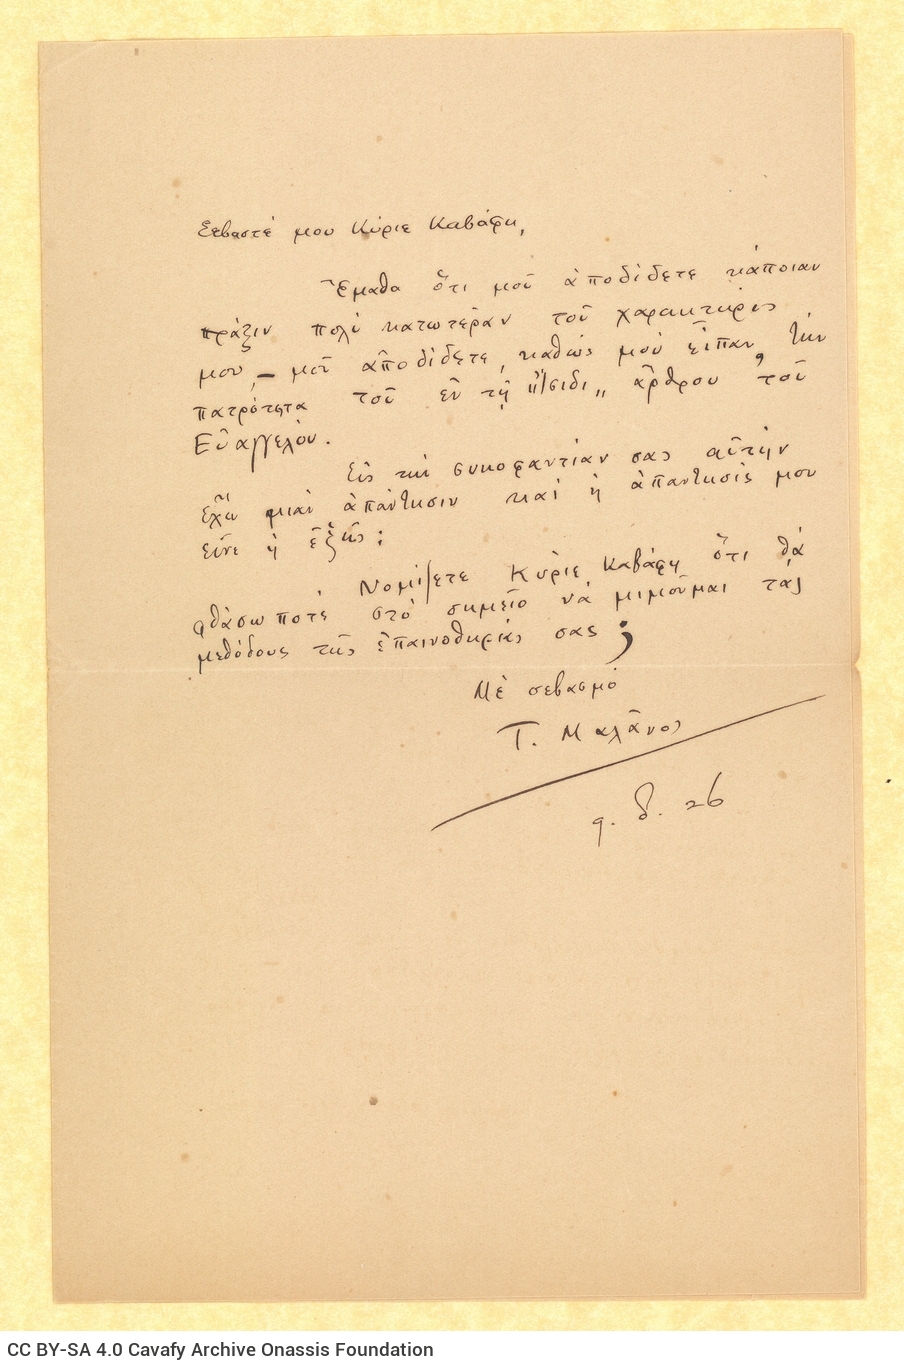 Σεβαστέ μου Κύριε Καβάφη,
Ἔμαθα ὅτι μοῦ ἀποδίδετε κάποιαν
πρᾶξιν πολὺ κατωτέραν τοῦ χαρακτῆρός
μου, — μοῦ ἀποδίδετε, καθὼς μοῦ εἶπαν, τὴν
πατρότητα τοῦ ἐν τῇ "Ἴσιδι„ ἄρθρου τοῦ
Εὐαγγέλου.
Εἰς τὴν συκοφαντίαν σας αὐτὴν
ἔχω μιὰν ἀπάντησιν καὶ ἡ ἀπάντησίς μου
εἶνε ἡ ἑξῆς:
Νομίζετε Κύριε Καβάφη ὅτι θὰ
φθάσω ποτὲ στὸ σημεῖο νὰ μιμοῦμαι τὰς
μεθόδους τῆς ἐπαινοθηρίας σας;
Μὲ σεβασμὸ
Τ. Μαλᾶνος
9. δ. 26
CC BY-SA 4.0 Cavafy Archive Onassis Foundation